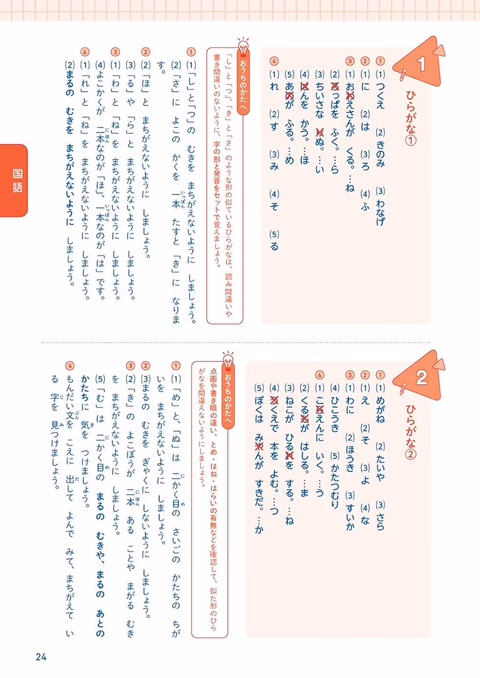 1
ひらがな①
① (1)つくえ (2)きのみ (3)わなげ
② (1)に (2)は (3)ろ (4)ふ
③ (1)おねえさんが くる。…ね
(2)らっぱを ふく。…ら
(3)ちいさな いぬ。…い
(4)ほんを かう。…ほ
(5)あめが ふる。…め
④ (1)れ (2)す (3)み (4)そ (5)る
おうちのかたへ
「し」と「つ」、「き」と「さ」のような形の似ているひらがなは、読み間違いや
書き間違いのないように、字の形と発音をセットで覚えましょう。
① (1)「し」と「つ」の むきを まちがえないように しましょう。
(2)「さ」に よこの かくを 一本 たすと 「き」に なりま
す。
② (2)「ほ」と まちがえないように しましょう。
(3)「る」や「ら」と まちがえないように しましょう。
③ (1)「わ」と「ね」を まちがえないように しましょう。
(4)よこかくが 二本なのが「ほ」、一本なのが「は」です。
④ (1)「れ」と「ね」を まちがえないように しましょう。
(2)まるの むきを まちがえないように しましょう。
国語
2
ひらがな②
① (1)めがね (2)たいや (3)さら
② (1)え (2)そ (3)よ (4)な
③ (1)わに (2)ほうき (3)すいか
(4)ひこうき (5)かたつむり
④ (1)こうえんに いく。…う
(2)くるまが はしる。…ま
(3)ねこが ひるねを する。…ね
(4)つくえで 本を よむ。…つ
(5)ぼくは みかんが すきだ。…か
おうちのかたへ
点画や書き順の違い、とめ・はね・はらいの有無などを確認して、似た形のひら
がなを間違えないようにしましょう。
① (1)「め」と、「ぬ」は 二かく目の さいごの かたちの ちが
いを まちがえないように しましょう。
② (3)まるの むきを ぎゃくに しないように しましょう。
③ (2)「き」の よこぼうが 二本 ある ことや まがる むき
を まちがえないように しましょう。
(5)「む」は 二かく目の まるの むきや、まるの あとの
かたちに 気を つけましょう。
④ もんだい文を こえに 出して よんで みて、まちがえて い
る 字を 見つけましょう。
24